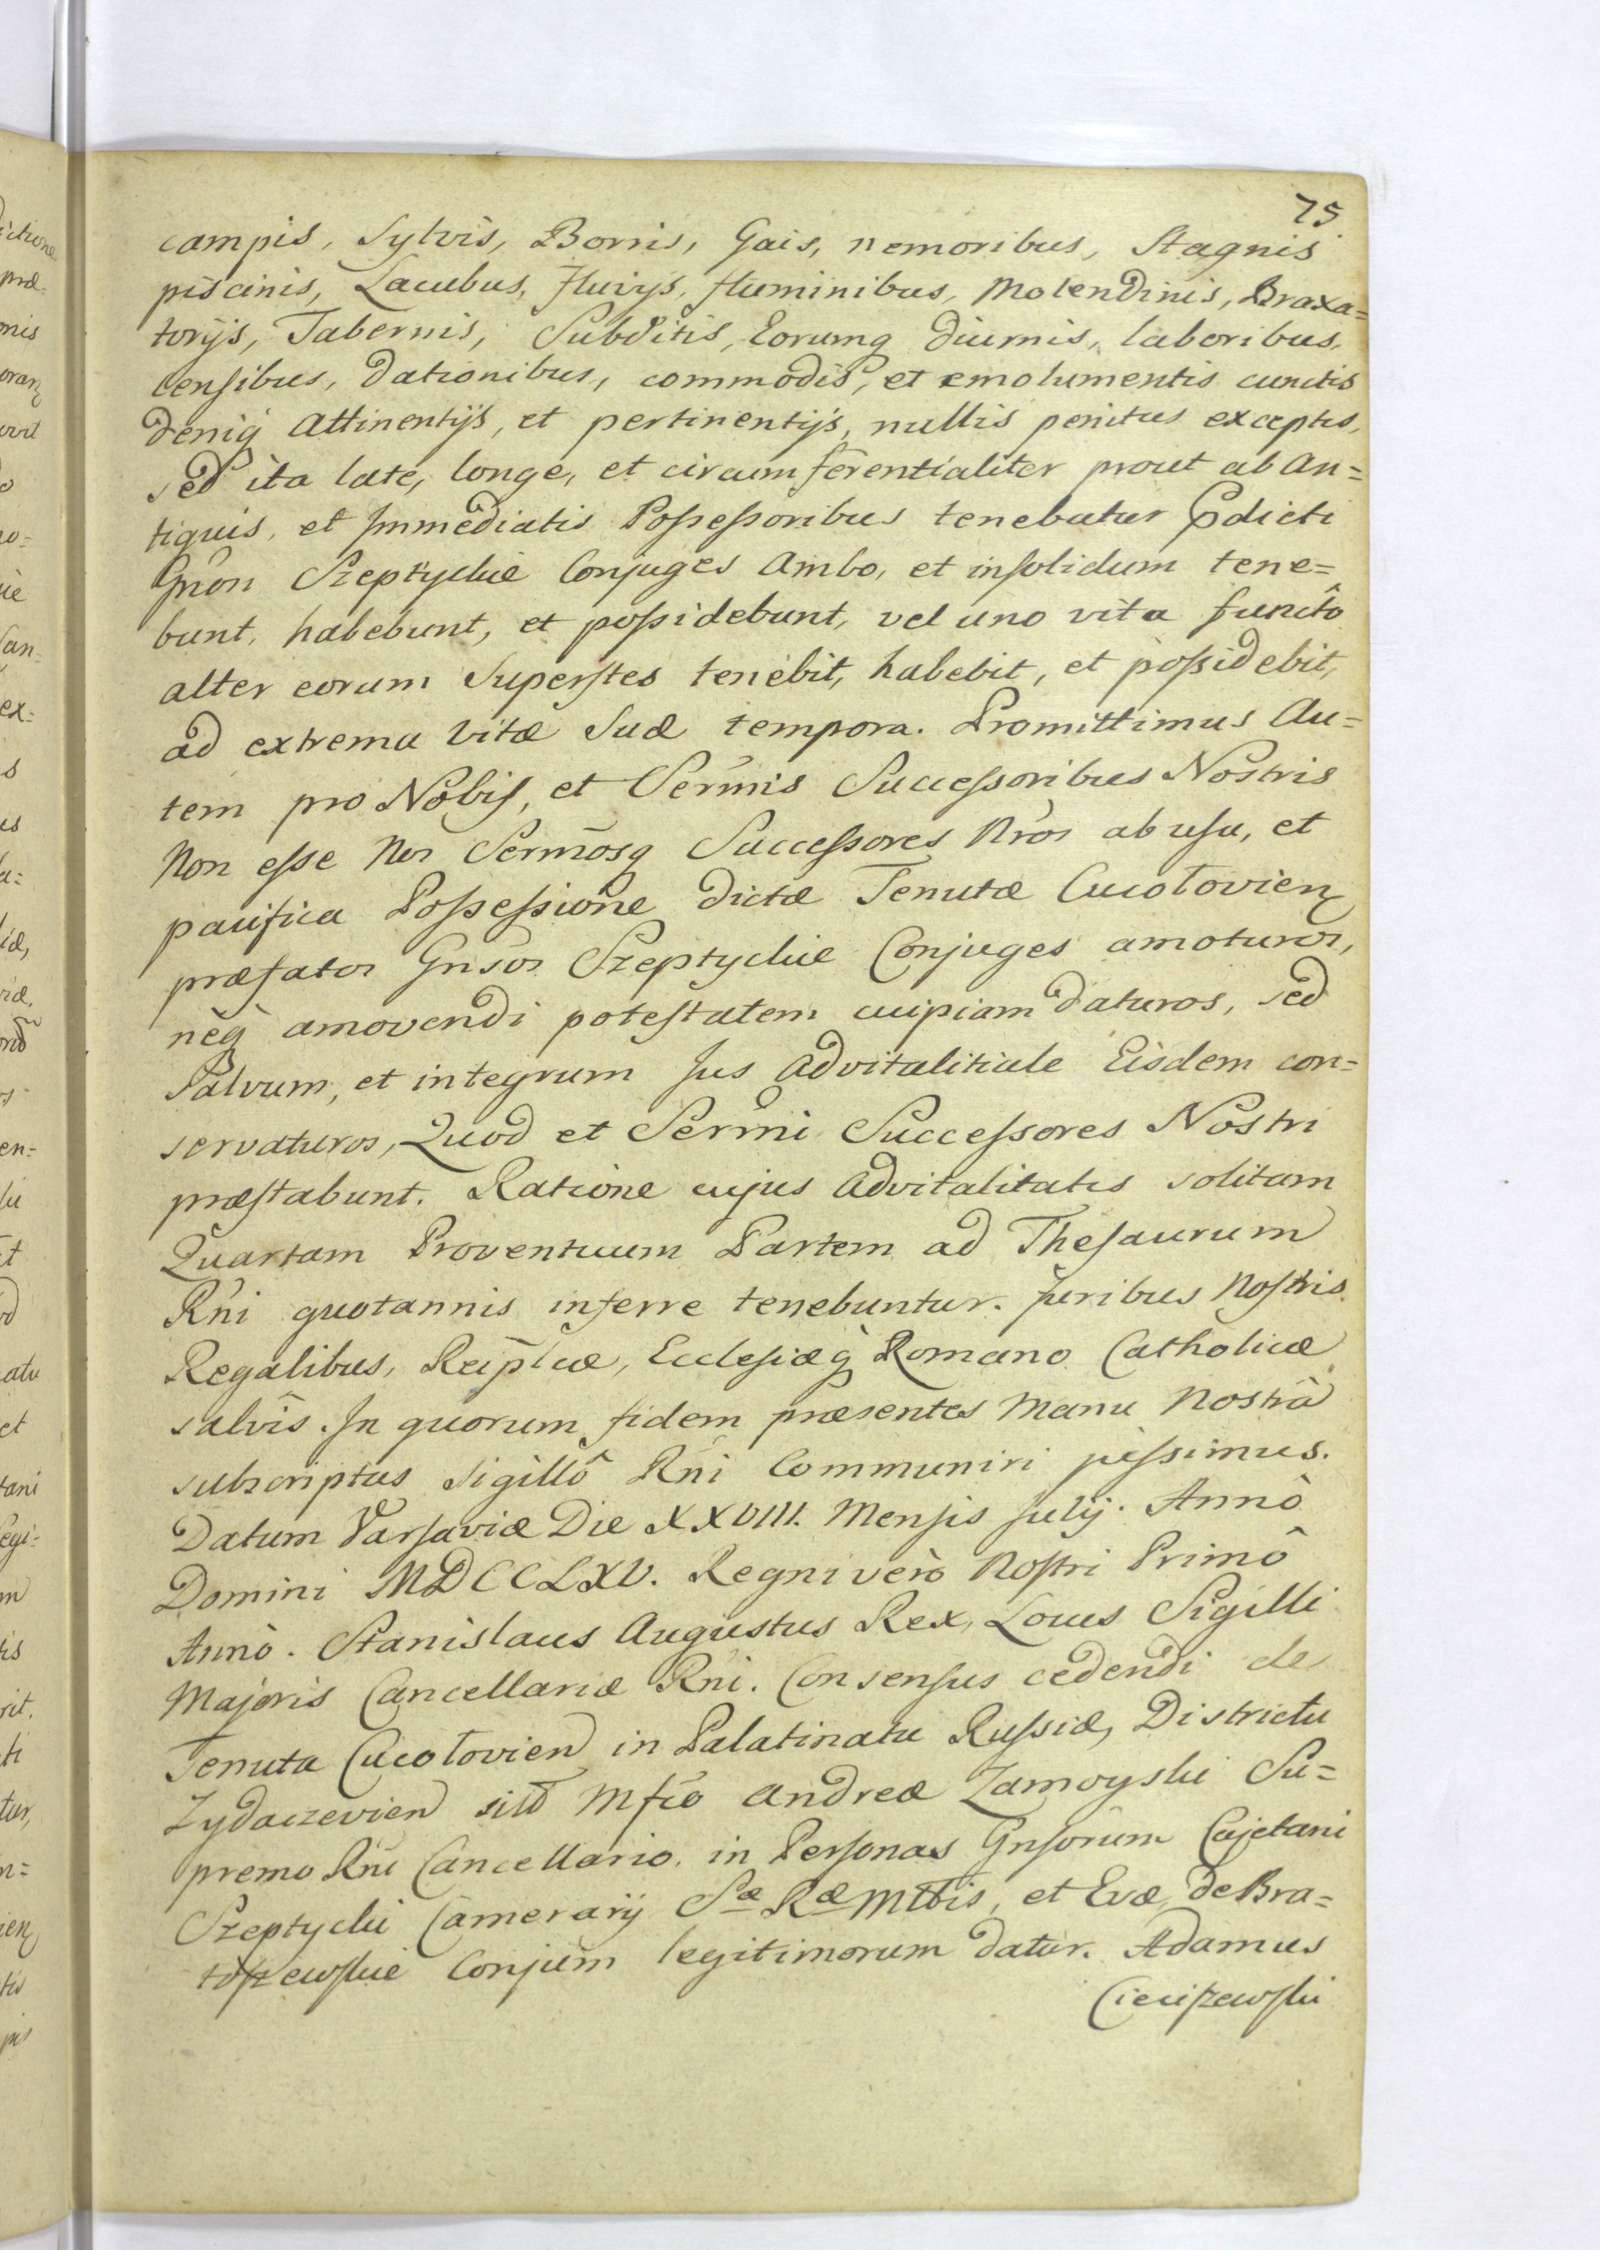 75
campis, Sylvis, Borris, Gais, nemoribus, Stagnis
piscinis, Lacubus, Fluvijs, fluminibus, Molendinis, Braxa=
torijs, Tabernis, Subditis, Eorumq diurnis, laboribus,
censibus, Dationibus, commodis, et emolumentis cunctis
deniq Attinentijs, et pertinentijs, nullis penitus exceptis,
sed ita late, longe, et circumferentialiter prout ab An=
tiquis, et Immediatis Possessoribus tenebatur Pdicti
Gnõn Szeptyckie Conjuges Ambo, et insolidum tene=
bunt, habebunt, et possidebunt, vel uno vita functô
alter eorum Superstes tenebit, habebit, et possidebit,
ad extrema Vitæ Suæ tempora. Promittimus Au=
tem pro Nobis, et Sermis Successoribus Nostris
Non esse Nos Sermosq Successores Nros ab usu, et
pacifica Possessione Dictæ Tenutæ Cucołovien
præfatos Gnsos Szeptyckie Conjuges amoturos,
neq amovendi potestatem cuipiam daturos, sed
Salvum, et integrum Jus Advitalitiale Eisdem con=
servaturos, Quod et Sermi Successores Nostri
præstabunt. Ratione cujus Advitalitatis solitam
Quartam Proventuum Partem ad Thesaurum
Rni quotannis inferre tenebuntur. Juribus Nostris
Regalibus, Reiplcæ, Ecclesiæq Romano Catholicæ
salvis. In quorum fidem præsentes Manu Nostrâ
subscriptas Sigillô Rni Communiri jussimus.
Datum Varsaviæ Die XXVIII. Mensis Julij. Annô
Domini MDCCLXV. Regni verò Nostri Primô
Annô. Stanislaus Augustus Rex, Locus Sigilli
Majoris Cancellariæ Rni. Consensus cedendi de
Tenuta Cucołovien in Palatinatu Russiæ, Districtu
Zydaczevien sitô Mfco Andreæ Zamoyski Su=
premo Rni Cancellario, in Personas Gnsorum Cajetani
Szeptycki Camerarij Sæ Ræ Mttis, et Evæ de Bra=
toszewskie Conjum legitimorum datur. Adamus
Cieciszewski